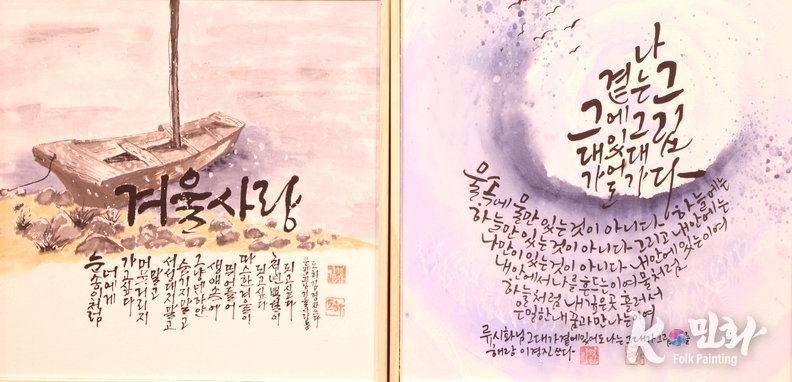 겨울사랑
눈송이처럼
너에게
가고싶다
머뭇거리지
말고
서성대지말고
숨기지말고
그냥네하얀
생애속에
뛰어들어
따스한겨울이
되고싶다
천년백설이
되고싶다
그대가
곁에있어도
나는그대가
그립다
물속에는 물만 있는것이 아니다 하늘에는
하늘만 있는것이 아니다 그리고 내안에는
나만이 있는것이 아니다 내안에 있는이여
내안에서 나를 흔드는이여 물처럼
하늘처럼 내 깊은곳 흘러서
은밀한 내꿈과 만나는이여
류시화님 그대가 곁에 있어도 나는 그대가 그립다를
해랑 이경진 쓰다
K 민화
Folk Painting